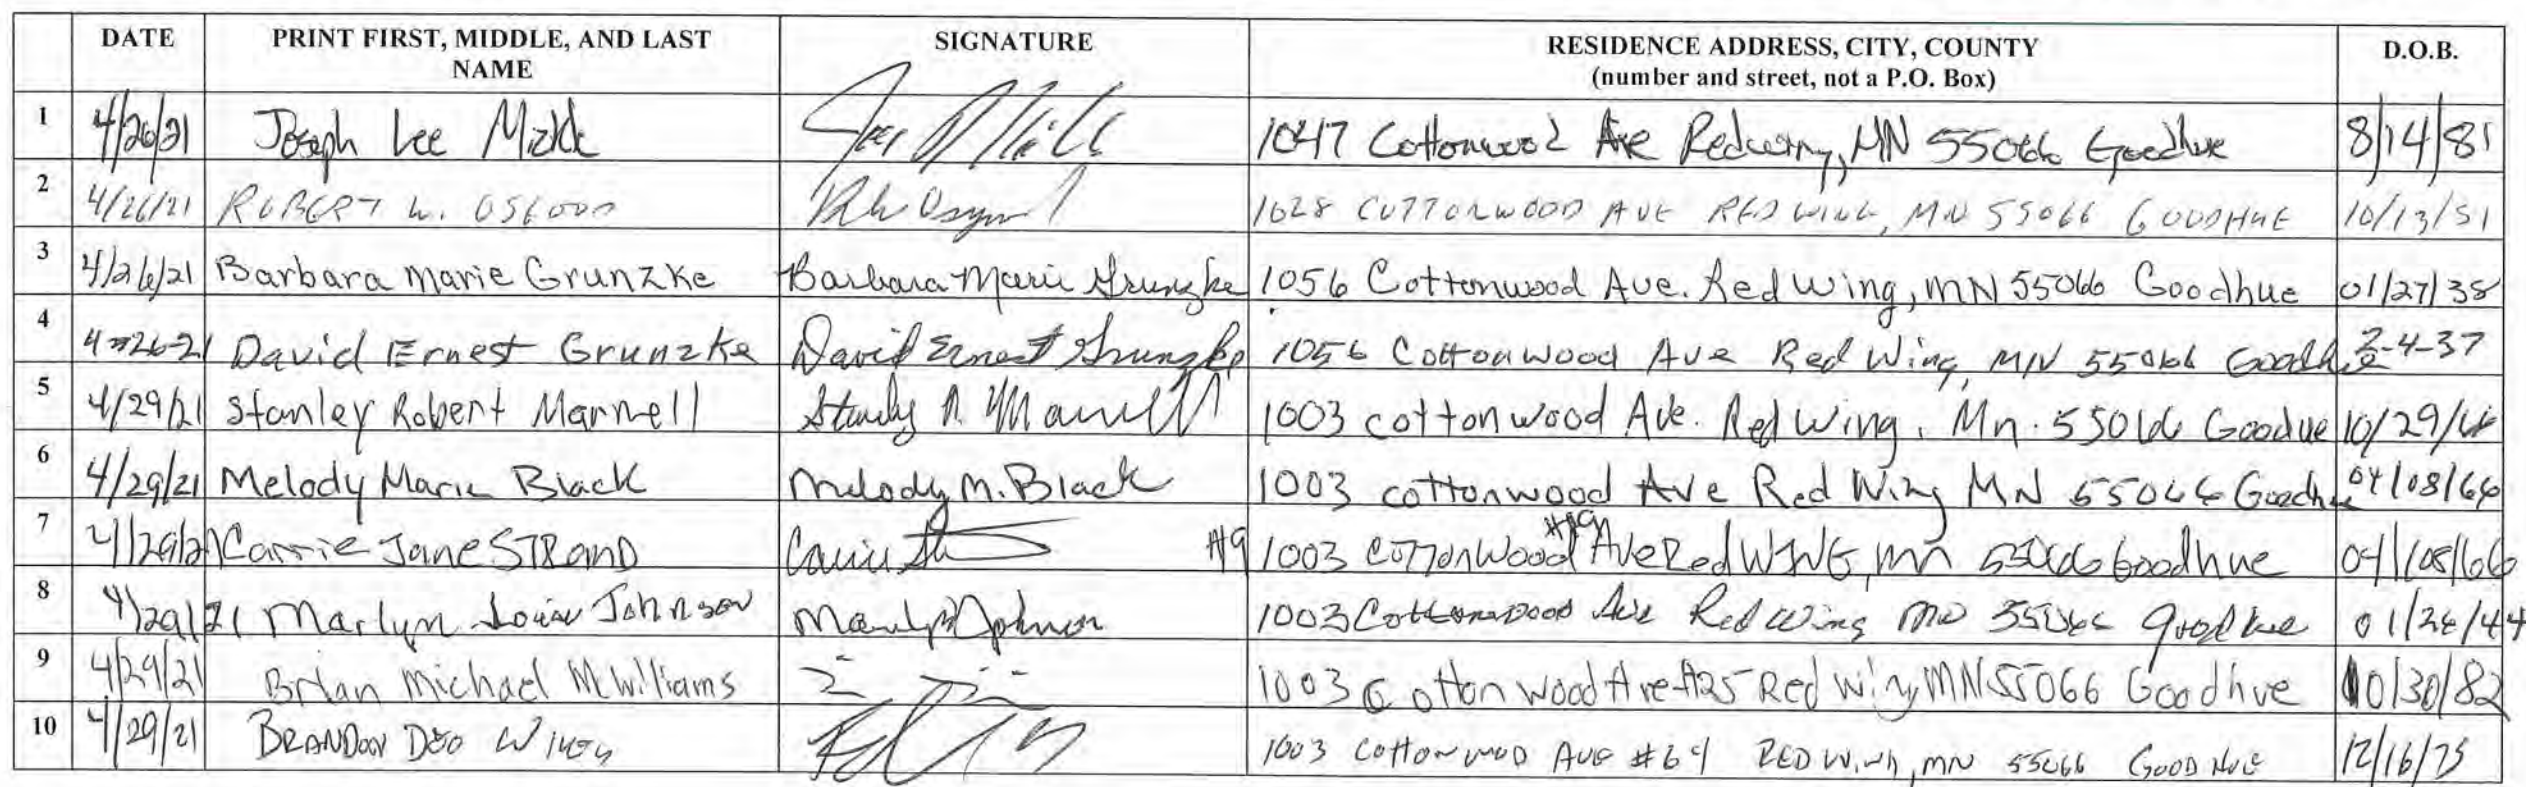 DATE PRINT FIRST, MIDDLE, AND LAST NAME SIGNATURE RESIDENCE ADDRESS, CITY, COUNTY (number and street, not a P.O. Box) D.O.B.
1 4/26/21 Joseph Lee 1047 Cottonwood Ave Redwing, MN 55066 Goodhue 8/14/81
2 4/26/21 ROBERT W. OSGOOD 1028 COTTONWOOD AVE RED WING, MN 55066 GOODHUE 10/13/51
3 4/26/21 Barbara Marie Grunzke Barbara Marie Grunzke 1056 Cottonwood Ave. Red Wing, MN 55066 Goodhue 01/27/38
4 4-26-21 David Ernest Grunzke David Ernest Grunzke 1056 Cottonwood Ave Red Wing, MN 55066 2-4-37
5 4/29/21 Stanley Robert Marnell Stanley R. Marnell 1003 cottonwood Ave. Red Wing, Mn. 55066 Goodue 10/29/
6 4/29/21 Melody Marie Black Melody M. Black 1003 cottonwood Ave Red Wing MN 55066 Goodhue 04/08/66
7 4/29/21 Carrie Jane STRAND Carrie #9 1003 COTTONWood #19 Ave Red WING, mn 55066 Goodhue 04/08/66
8 4/29/21 Marlyn Johnson 1003 Cottonwood Ave Red Wing MN 55066 Goodhue 01/26/44
9 4/29/21 Brian Michael McWilliams 1003 Cottonwood Ave #25 Red Wing, MN 55066 Goodhue 10/30/82
10 4/29/21 BRANDON 1003 Cottonwood AVE RED WING, MN 55066 GOODHUE 12/16/75